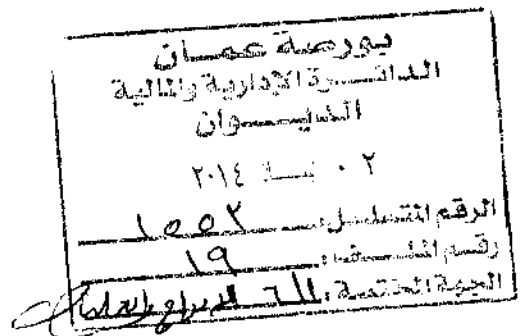 بورصة عمان
الدائرة الإدارية والمالية
الديوان
٠٢ ٢٠١٤
الرقم المتسلسل: ١٥٥٢
رقم الملف: ١٩
الجهة المختصة: